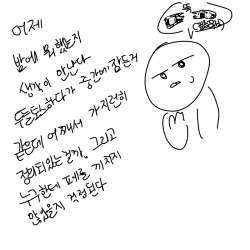 어제
밤에 뭐 했는지
생각이 안난다
두들토하다가 중간에 잠든거
같은데 어째서 가지런히
정리되있는걸까. 그리고
누구한테 폐를 끼치지
않았을지 걱정된다